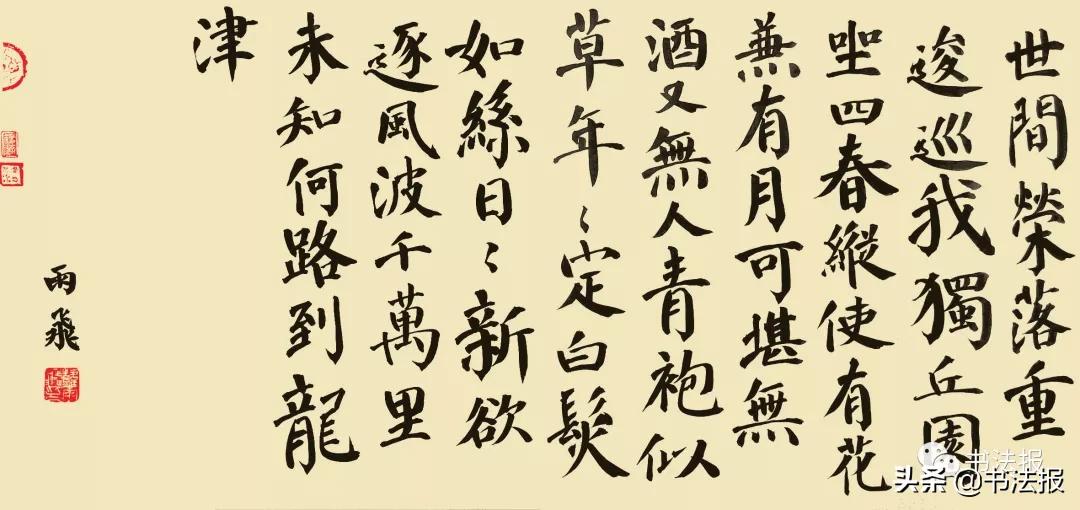 世間榮落重
逡巡我獨丘園
坐四春縱使有花
兼有月可堪無
酒又無人青袍似
草年〻定白髮
如絲日〻新欲
逐風波千萬里
未知何路到龍
津
雨飛
书法报
头条 @书法报